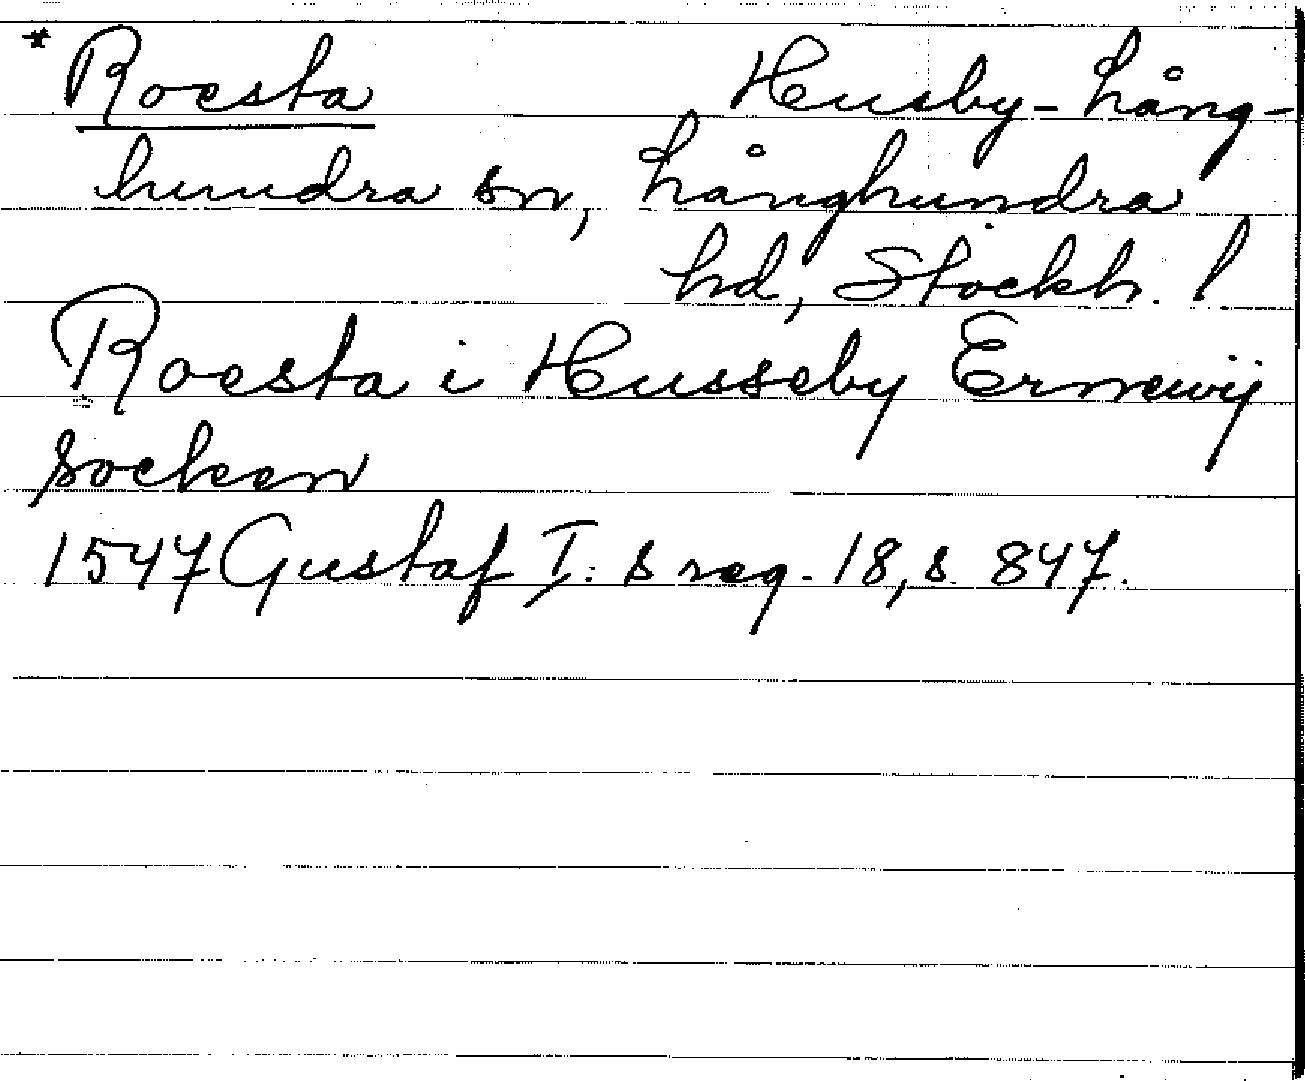 * Roesta Husby-Lång-
hundra sn, Långhundra
hd, Stockh. l
Roesta i Husseby Ernewij
socken
1547 Gustaf I:s reg. 18, s 847.